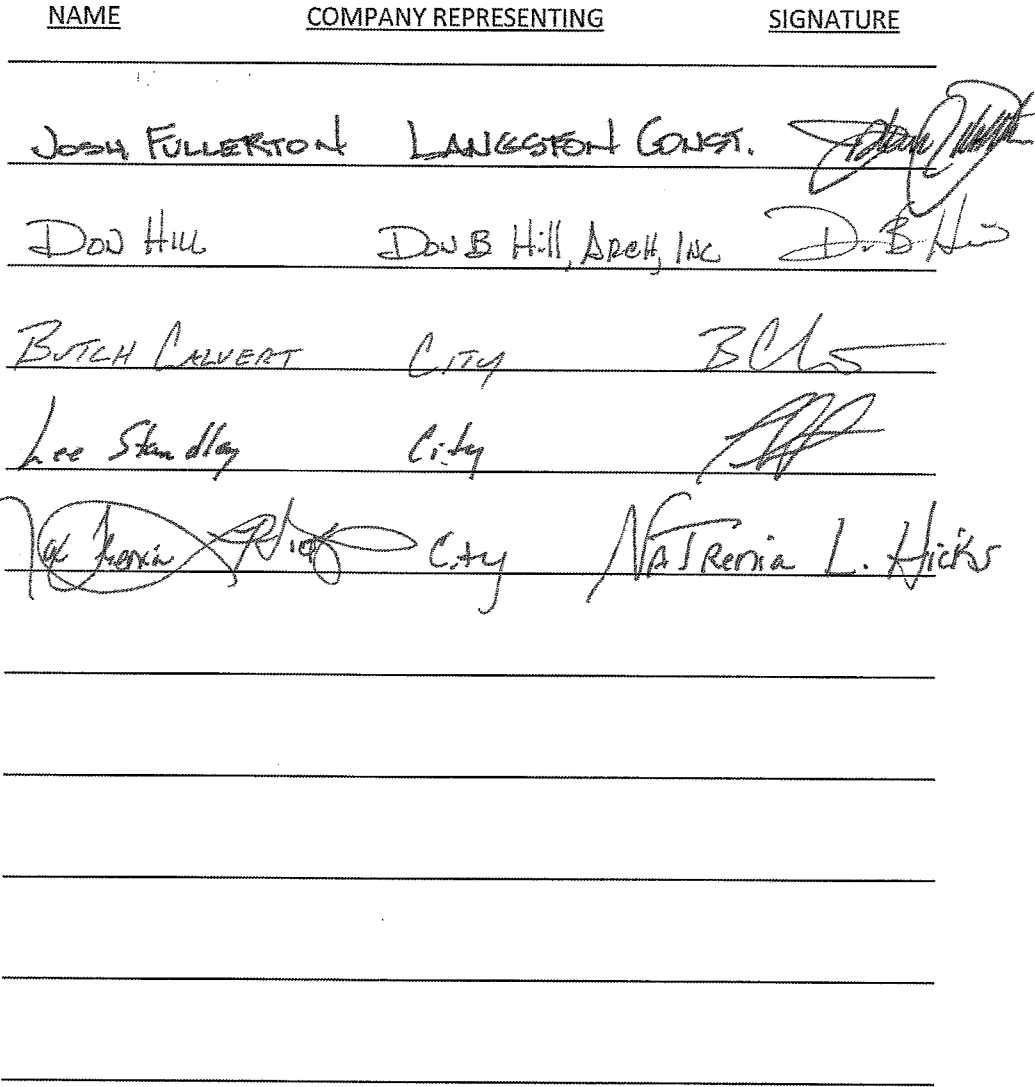 NAME COMPANY REPRESENTING SIGNATURE
JOSH FULLERTON LANGSTON CONST.
DON HILL DON B Hill, ARCH, INC D. B Hill
BUTCH CALVERT CITY
Lee Standley City
City NATRenia L. Hicks